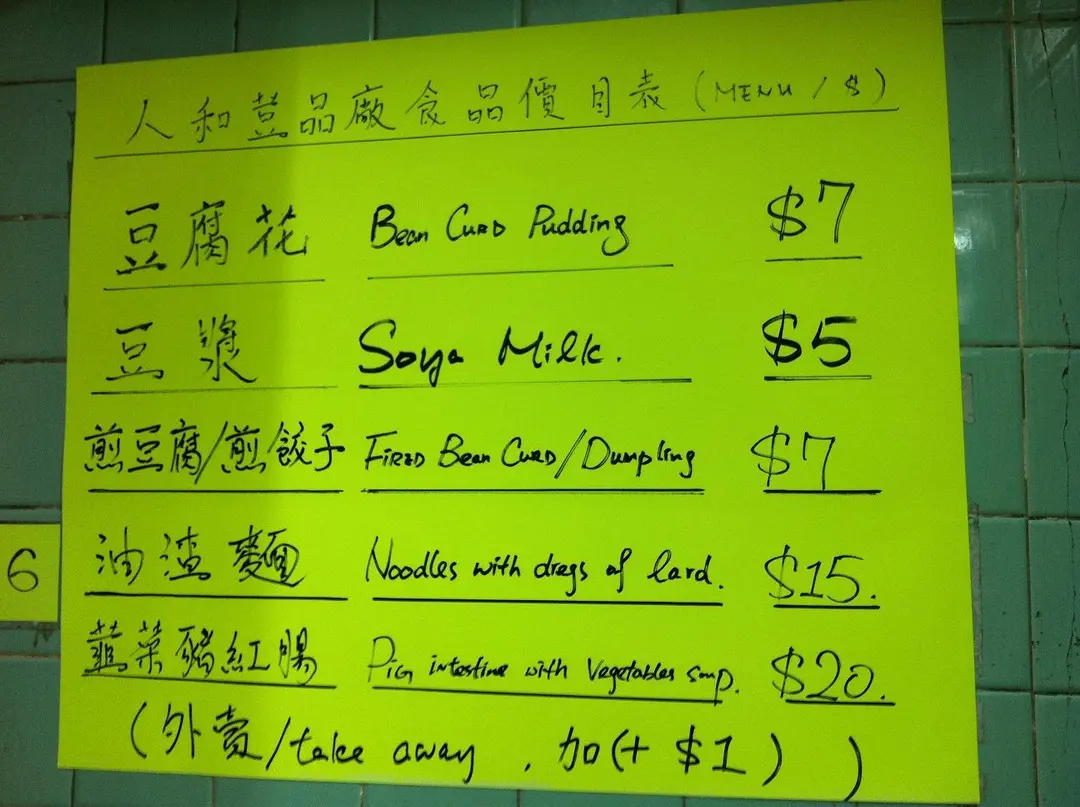 人和荳品廠食品價目表 (MENU / $)
豆腐花 Bean Curd Pudding $7
豆漿 Soya Milk. $5
煎豆腐/煎餃子 Fired Bean Curd/Dumpling $7
油渣麵 Noodles with dregs of lard. $15.
韮菜豬紅腸 Pig intestine with Vegetables soup. $20.
(外賣/take away , 加(+ $1) )
6